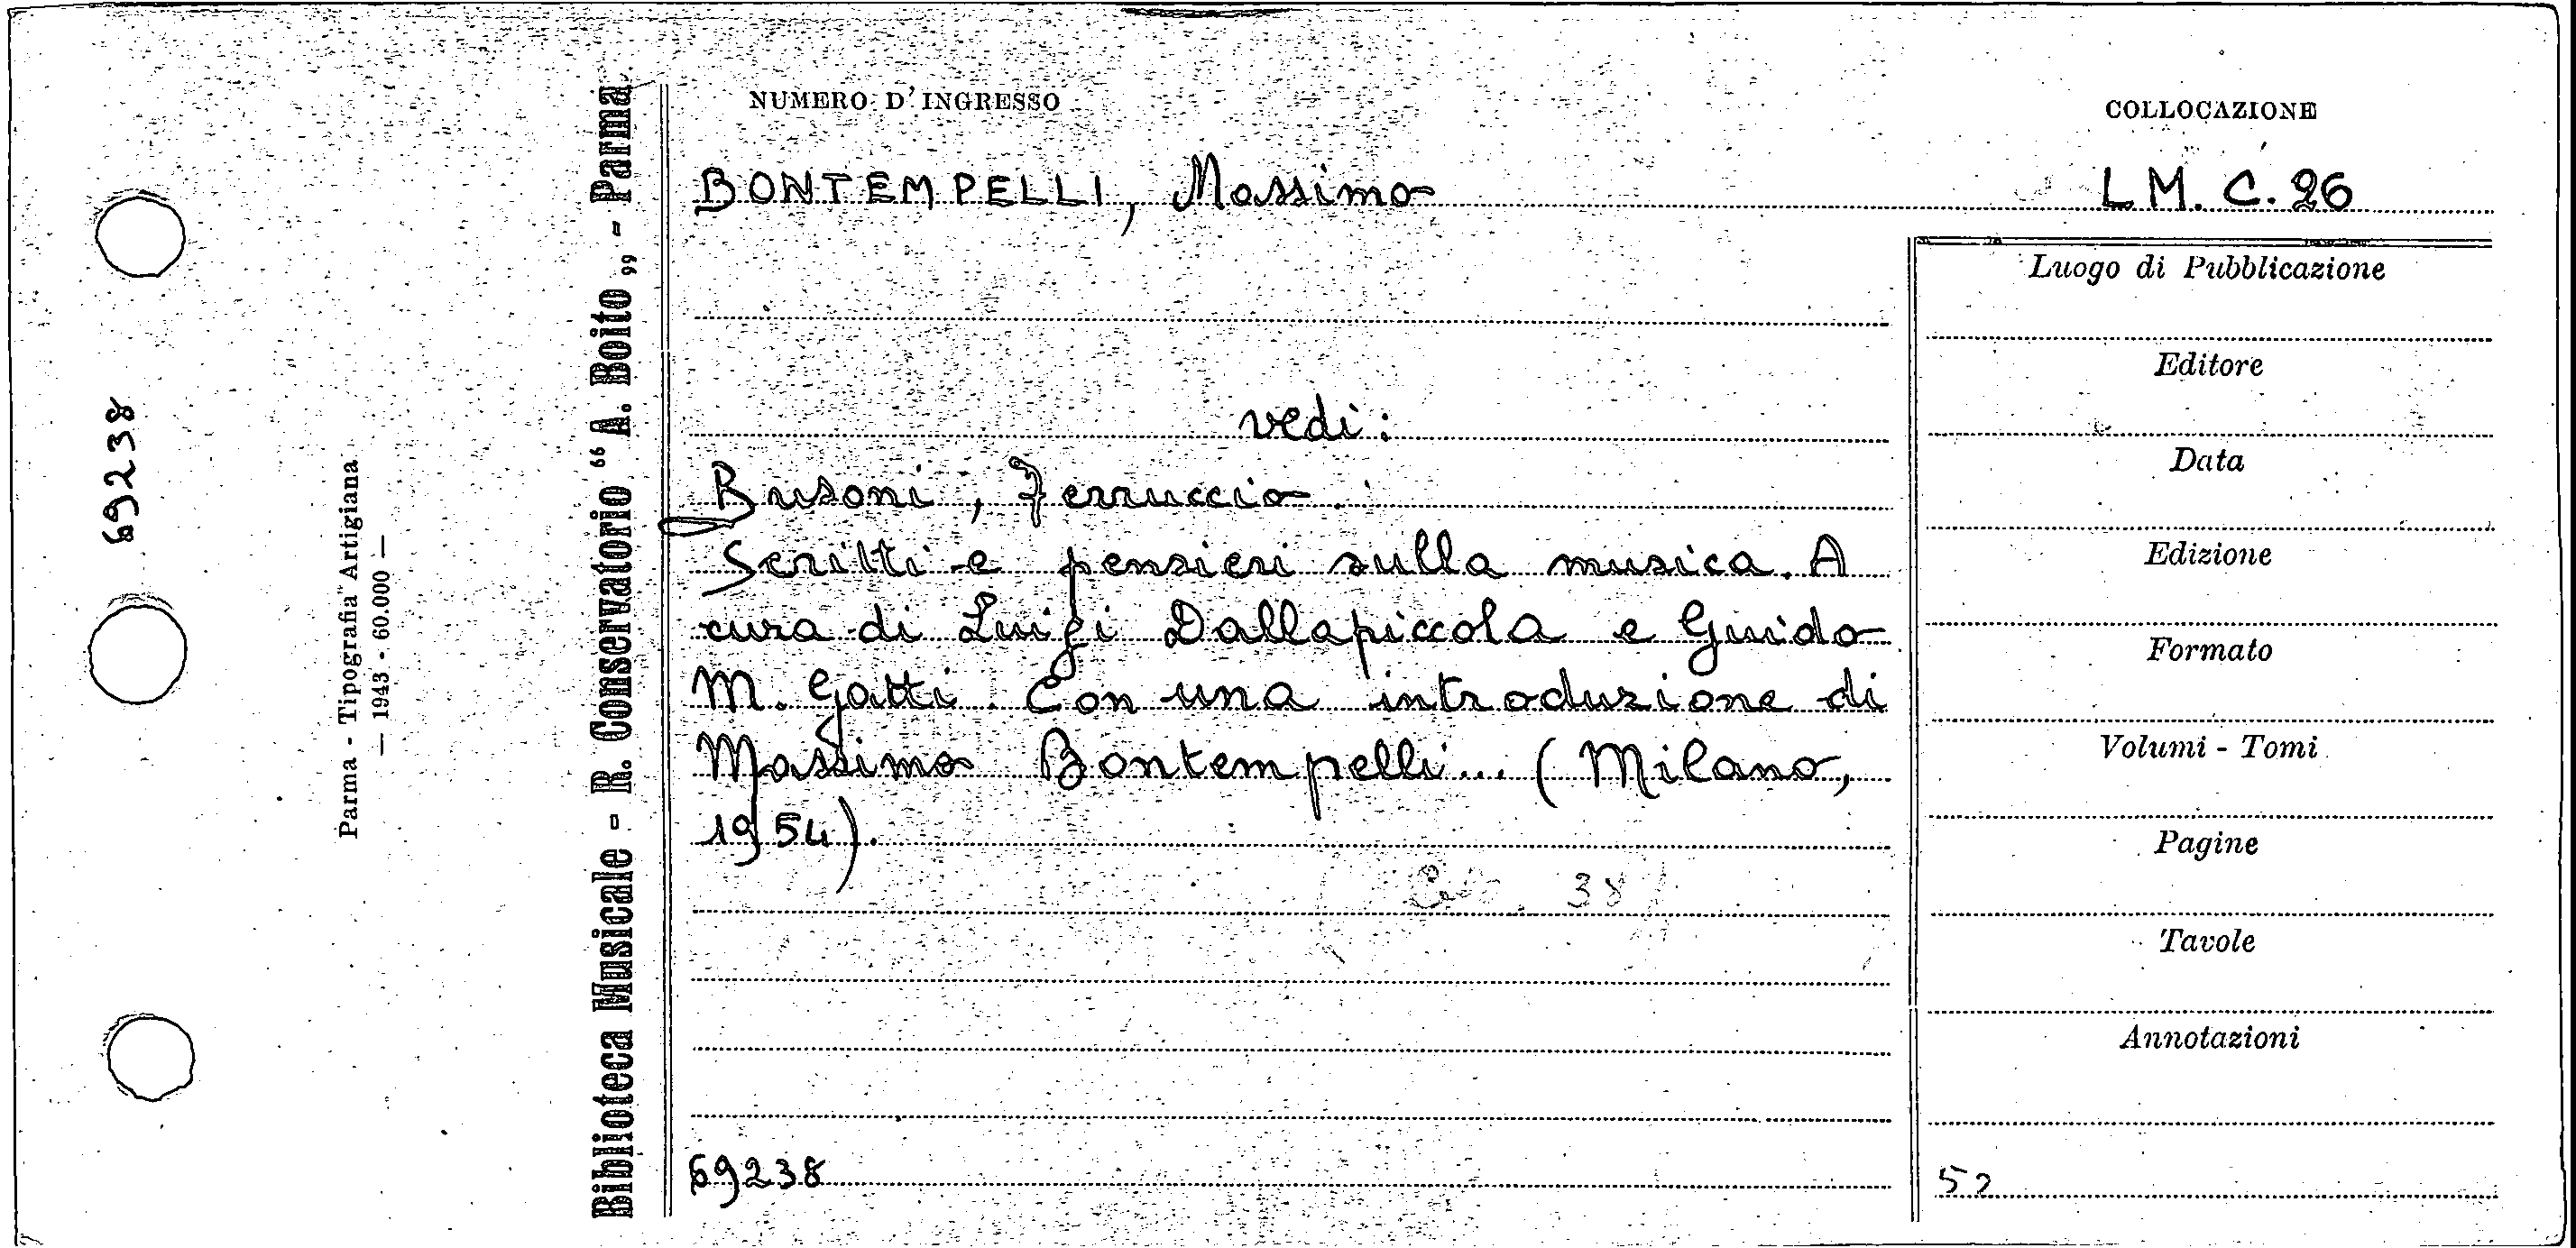 NUMERO D'INGRESSO
COLLOCAZIONE
BONTEMPELLI, Massimo
L M. C. 26
vedi:
Busoni, Ferruccio.
Scritti e pensieri sulla musica. A
cura di Luigi Dallapiccola e Guido
M. Gatti. Con una introduzione di
Massimo Bontempelli... (Milano,
1954).
38
69238
Luogo di Pubblicazione
Editore
Data
Edizione
Formato
Volumi - Tomi
Pagine
Tavole
Annotazioni
52
Biblioteca Musicale - R. Conservatorio “A. Boito„ - Parma
Parma - Tipografia Artigiana
— 1943 - 60.000 —
69238